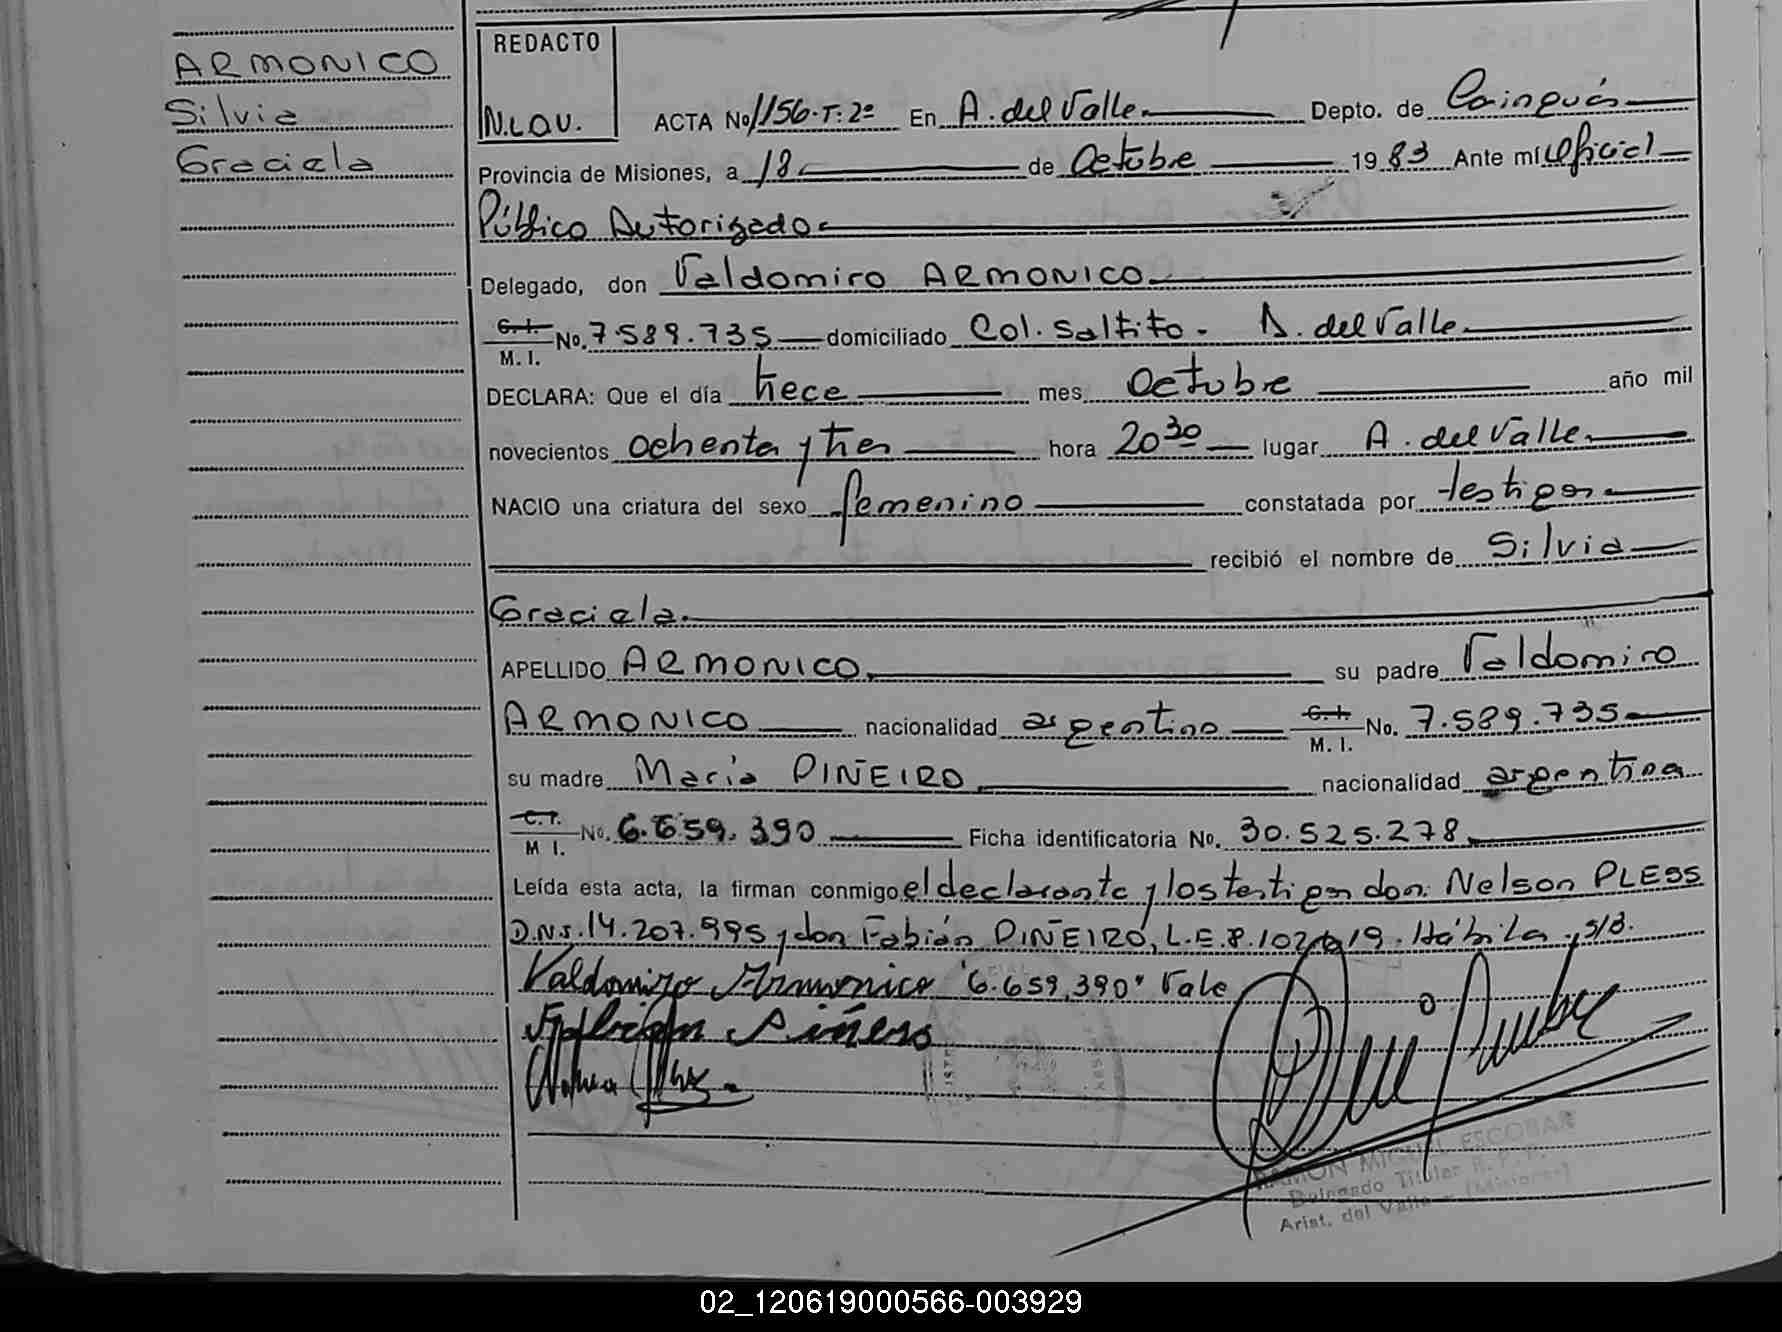 ARMONICO
Silvia
Graciela
REDACTO
ACTA No 1156-T:2º En A. del Valle Depto. de Cainguás
Provincia de Misiones, a 18 de Octubre 1983 Ante mí Oficial
Público Autorizado
Delegado, don Valdomiro ARMONICO
C.I. M.I. No. 7.589.735 domiciliado Col. Saltito - A. del Valle
DECLARA: Que el día trece mes Octubre año mil
novecientos ochenta y tres hora 20 30 lugar A. del Valle
NACIO una criatura del sexo femenino constatada por testigos
recibió el nombre de Silvia
Graciela.
APELLIDO ARMONICO su padre Valdomiro
ARMONICO nacionalidad argentino C.I. M.I. No. 7.589.735
su madre María PIÑEIRO nacionalidad argentina
C.I. M I. No. 6.659.390 Ficha identificatoria No. 30.525.278
Leída esta acta, la firman conmigo el declarante y los testigos don: Nelson PLESS
D.N.I. 14.207.995 y don Fabián PIÑEIRO, L.E. 8.102.619. Hábiles y s/B.
Valdomiro Armonico "6.659,390" Vale
Fabian Piñeiro
RAMON MIGUEL ESCOBAR
Delegado Titular R. P. P.
Arist. del Valle - (Misiones)
02_120619000566-003929